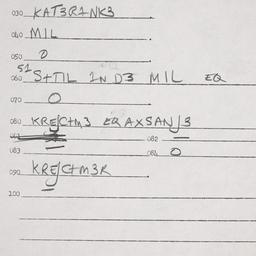 030 KAT3R1NK3
040 MIL
050 0
51
060 S+TIL IN D3 MIL EQ
070 0
080 KREJC+M3 EQ AXSANJ3
082
083 084 0
090 KREJC+M3R
100